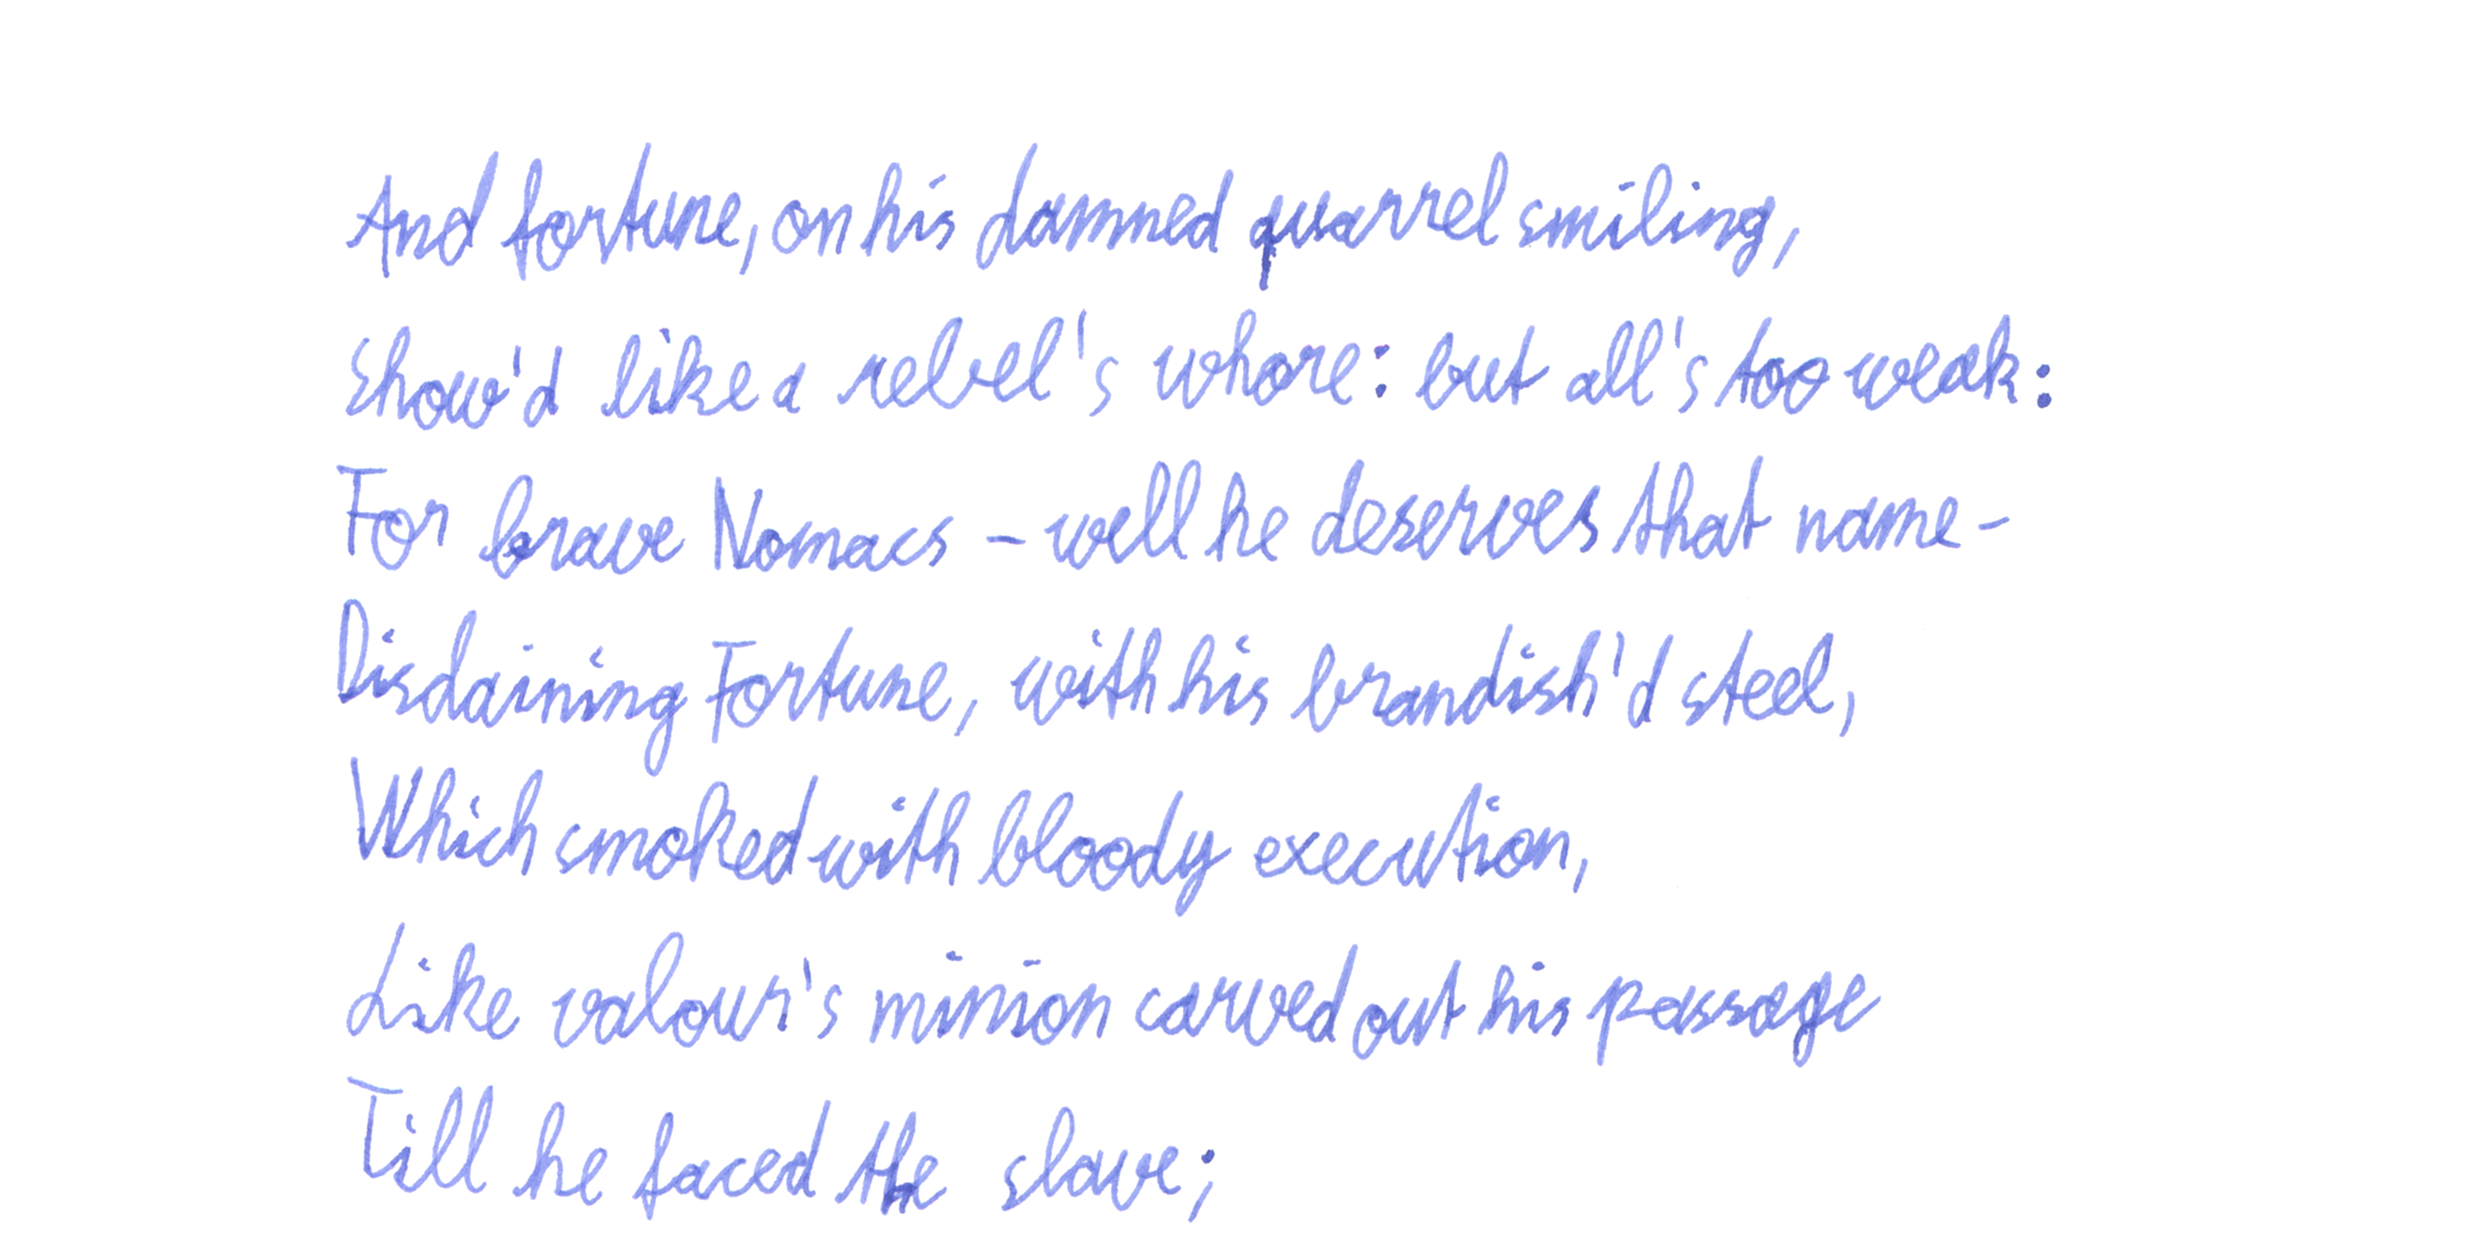 And fortune, on his damned quarrel smiling,
Show'd like a rebel's whore: but all's too weak:
For brave Nomacs - well he deserves that name -
Disdaining Fortune, with his brandish'd steel,
Which smoked with bloody execution,
Like valour's minion carved out his passage
Till he faced the slave;